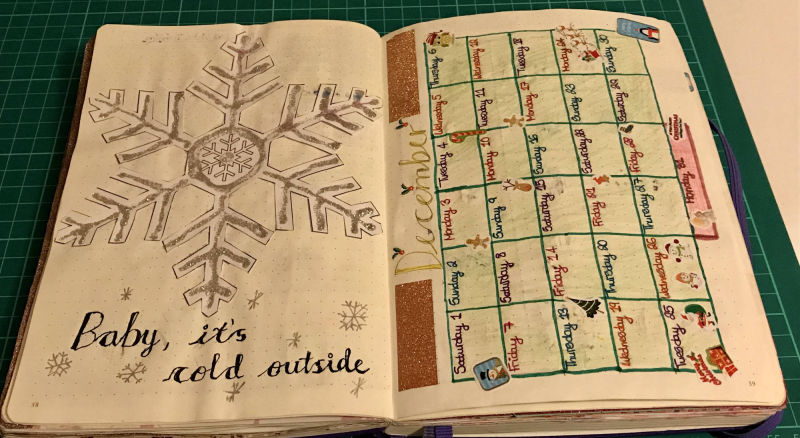 Baby, it's
cold outside
December
Saturday 1 Sunday 2 Monday 3 Tuesday 4 Wednesday 5 Thursday 6
Friday 7 Saturday 8 Sunday 9 Monday 10 Tuesday 11 Wednesday 12
Thursday 13 Friday 14 Saturday 15 Sunday 16 Monday 17 Tuesday 18
Wednesday 19 Thursday 20 Friday 21 Saturday 22 Sunday 23 Monday 24
Tuesday 25 Wednesday 26 Thursday 27 Friday 28 Saturday 29 Sunday 30
Monday 31